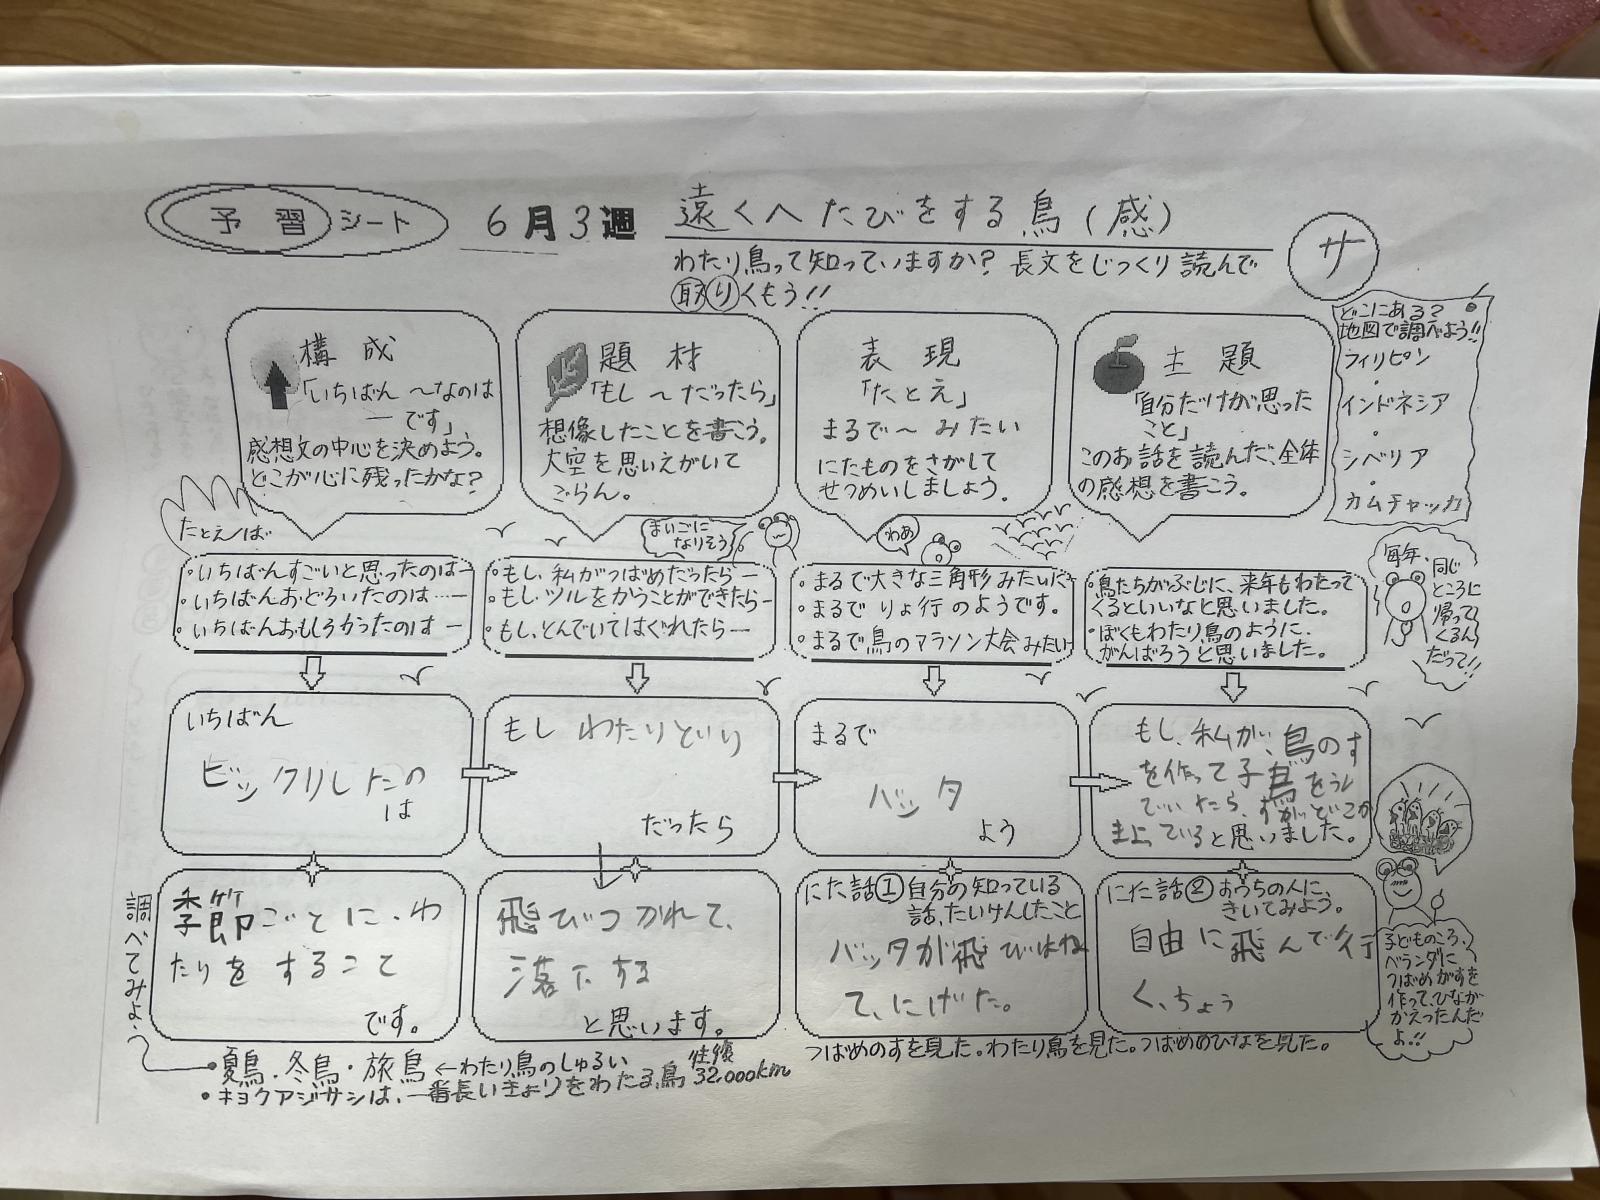 予習シート
6月3週
遠くへたびをする鳥(感)
サ
わたり鳥って知っていますか?長文をじっくり読んで
取りくもう!!
構成
「いちばん〜なのは
―です」
感想文の中心を決めよう。
どこが心に残ったかな?
題材
「もし〜だったら」
想像したことを書こう。
大空を思いえがいて
ごらん。
表現
「たとえ」
まるで〜みたい
にたものをさがして
せつめいしましょう。
主題
「自分だけが思った
こと」
このお話を読んだ、全体
の感想を書こう。
どこにある?
地図で調べよう!!
フィリピン
・
インドネシア
・
シベリア
・
カムチャッカ
たとえば
まいごに
なりそう
わあ
・いちばんすごいと思ったのは―
・いちばんおどろいたのは…―
・いちばんおもしろかったのは―
・もし、私がつばめだったら―
・もし、ツルをかうことができたら―
・もし、とんでいてはぐれたら―
・まるで大きな三角形みたいに
・まるでりょ行のようです。
・まるで鳥のマラソン大会みたい
・鳥たちがぶじに、来年もわたって
くるといいなと思いました。
・ぼくもわたり鳥のように、
がんばろうと思いました。
毎年、同じ
ところに
帰って
くるん
だって!!
いちばん
ビックリしたの
は
もし わたりどり
だったら
まるで
バッタ
よう
もし、私が、鳥のす
を作って子鳥をうし
でいたら、すがどこか
と思いました。
調べてみよう
季節ごとに、わ
たりをすること
です。
飛びつかれて、
落下する
と思います。
にた話① 自分の知っている
話、たいけんしたこと
バッタが飛びはね
て、にげた。
にた話② おうちの人に、
きいてみよう。
自由に飛んで行
く、ちょう
子どものころ、
ベランダに
つばめがすを
作って、ひなが
かえったんだ
よ!!
つばめのすを見た。わたり鳥を見た。つばめのひなを見た。
・夏鳥・冬鳥・旅鳥 ←わたり鳥のしゅるい
・キョクアジサシは、一番長いきょりをわたる鳥 往復32,000km